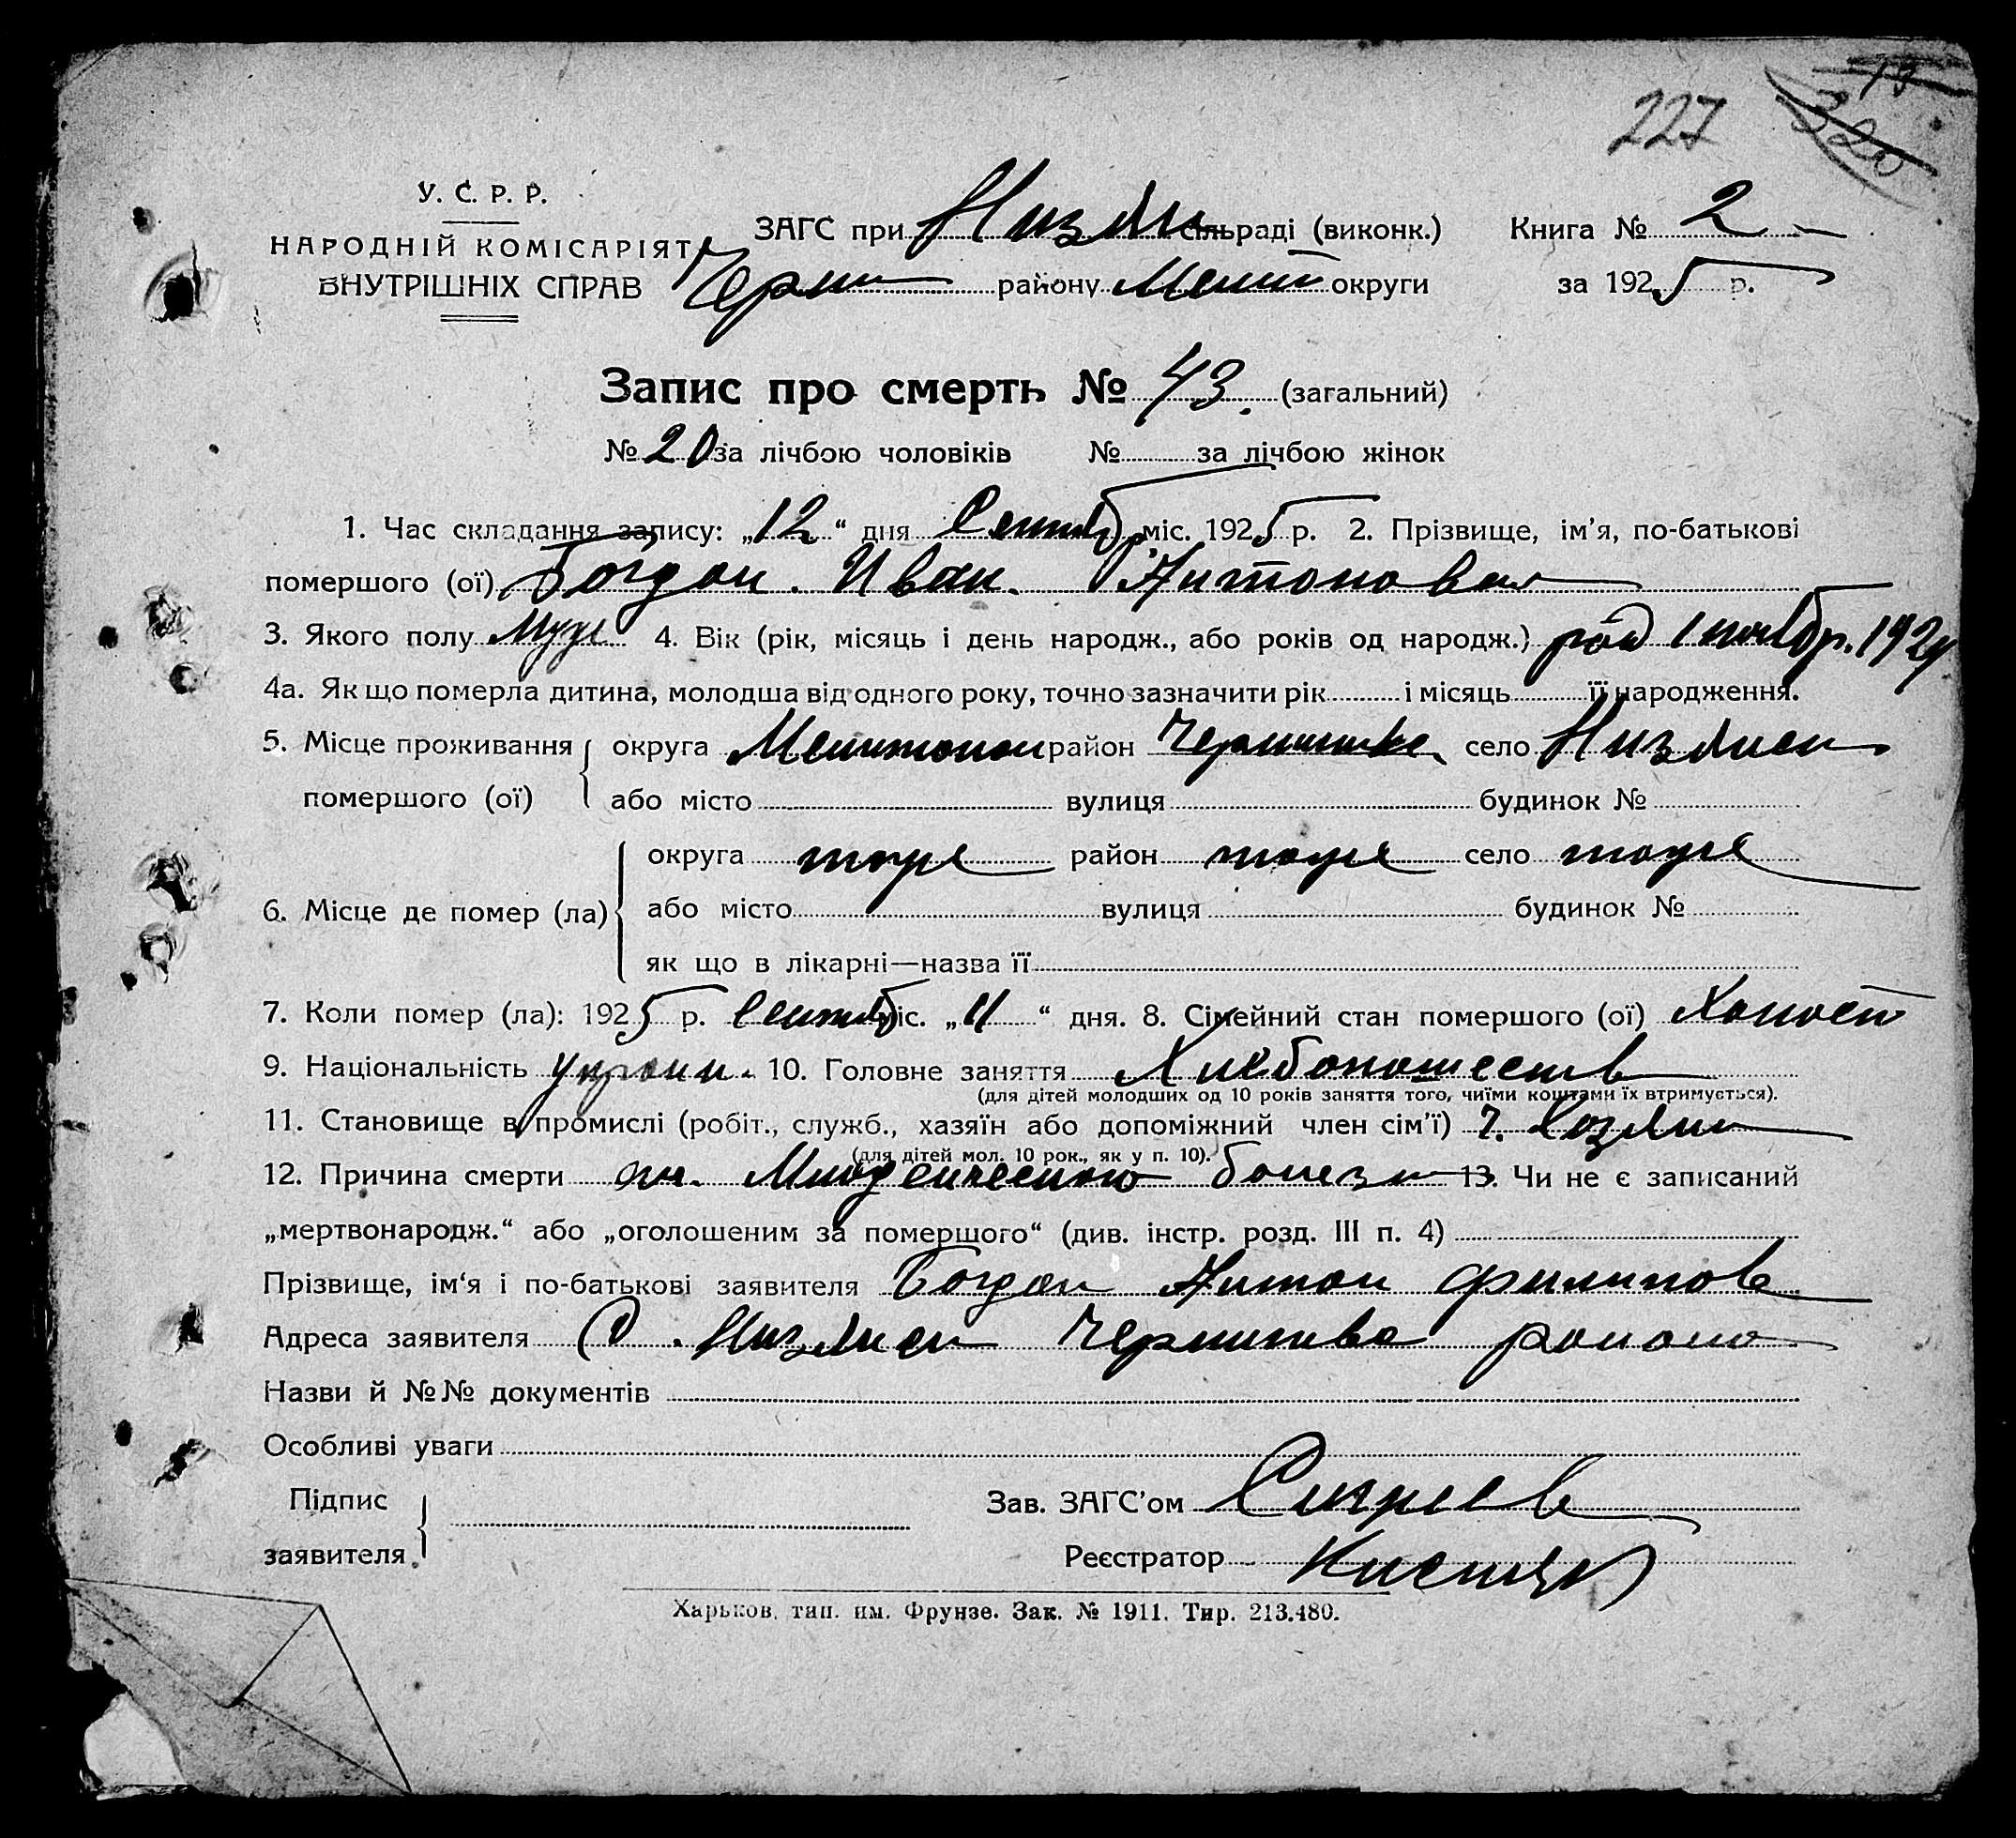 227 320 13
У. С. Р. Р.
НАРОДНІЙ КОМІСАРІЯТ
ВНУТРІШНІХ СПРАВ
ЗАГС при сільраді (виконк.) Книга № 2
району округи за 1925 р.
Запис про смерть № 43. (загальний)
№ 20 за лічбою чоловіків № за лічбою жінок
1. Час складання запису: „12“ дня Сентябр міс. 1925 р. 2. Прізвище, ім'я, по-батькові
помершого (ої) Богдан. Иван. Антонович
3. Якого полу Муж 4. Вік (рік, місяць і день народж., або років од народж.) род 1 ноябр. 1924
4а. Як що померла дитина, молодша від одного року, точно зазначити рік і місяць її народження.
5. Місце проживання округа район село
помершого (ої) або місто вулиця будинок №
округа тоже район тоже село тоже
6. Місце де помер (ла) або місто вулиця будинок №
як що в лікарні—назва її
7. Коли помер (ла): 1925 р. Сентяб міс. „11“ дня. 8. Сімейний стан помершого (ої) Холост
9. Національність украин. 10. Головне заняття Хлебопашеств
(для дітей молодших од 10 років заняття того, чиїми коштами їх втримується).
11. Становище в промислі (робіт., служб., хазяїн або допоміжний член сім'ї) Хозяин
(для дітей мол. 10 рок., як у п. 10).
12. Причина смерти от Младенческою болезн 13. Чи не є записаний
„мертвонародж.“ або „оголошеним за помершого“ (див. інстр. розд. III п. 4)
Прізвище, ім'я і по-батькові заявителя Богдан Антон Филипов
Адреса заявителя С. района
Назви й №№ документів
Особливі уваги
Підпис
заявителя
Зав. ЗАГС'ом
Реєстратор
Харьков, тип. им. Фрунзе. Зак. № 1911. Тир. 213.480.